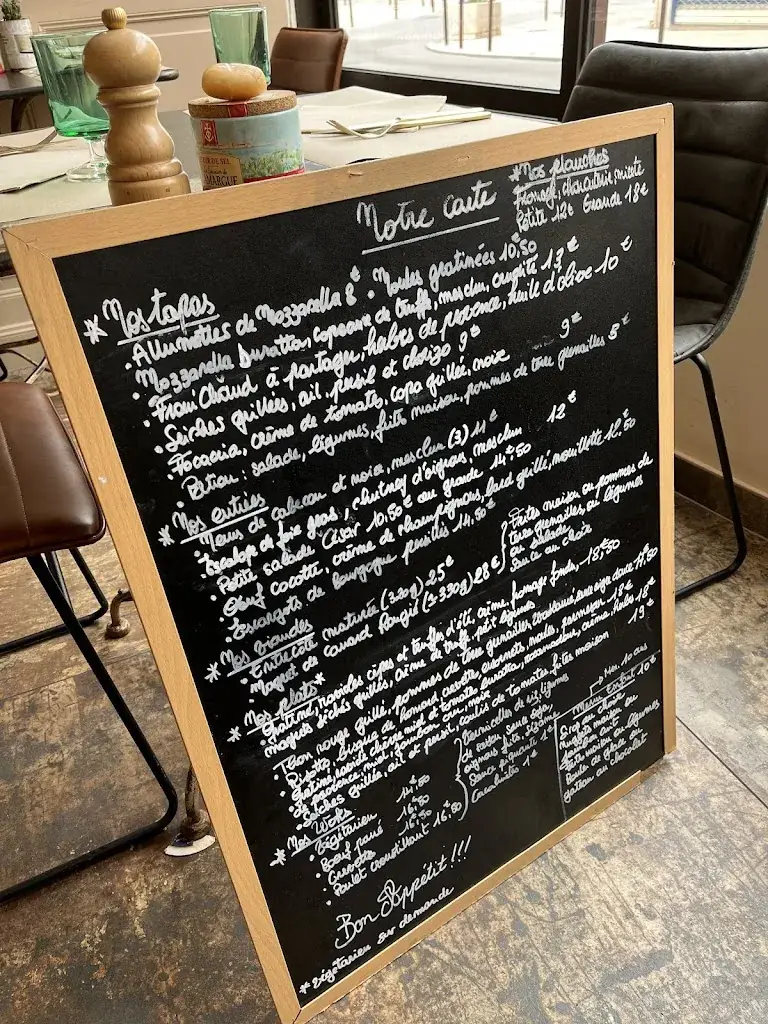 FLEUR DE SEL
CAMARGUE
Notre carte
*Nos planches
Fromage, charcuterie, mixte
Petite 12€ Grande 18€
* Nos tapas
. Allumettes de Mozzarella 8€ . Moules gratinées 10,50€
. Mozzarella burratta, copeaux de truffe, mesclun, 13€
. From' Chaud à partager, herbes de provence, huile d'olive 10€
. Seiches grillées, ail, persil et chorizo 9€
. Focaccia, crème de tomate, copa grillée, noix 9€
. Potion: salade, légumes, frites maison, pommes de terre grenailles 5€
* Nos entrées
. de cabecou et noix, mesclun (3) 11€
. Escalope de foie gras, chutney d'oignons, mesclun 12€
. Petite salade César 10,50€ ou grande 14,50€
. Oeuf cocotte, crème de champignons, lard grillé, mouillette 10,50€
. Escargots de Bourgogne persillés 14,50€
* Nos viandes
. Entrecôte maturée (320g) 25€
. Magret de canard Rougié (± 330g) 28€
Frites maison ou pommes de
terre grenailles, ou légumes
ou salade
Sauce au choix
* Nos plats*
. Gratiné, ravioles cèpes et truffes d'été, crème, fromage fondu, 18,50
. grillés, crème de truffe, petit légumes
. Thon rouge grillé, pommes de terre grenailles
. Risotto, bisque de homard, parmesan 18€
. de provence, miel, noix
. Seiches grillée, ail et persil, coulis de tomates, frites maison 19€
* Nos Woks
. Végétarien 14,50
. Boeuf pané 16,50
. Crevette 16,50
. Poulet croustillant 16,50
Vermicelle de riz, légumes
de saison, sauce soja,
oignons frits, sésame
Sauce piquante 1€
Cacahuètes 1€
Menu Enfant 10€
10 ans
Sirop au choix
Nuggets maison ou
frite maison ou légumes
Boule de glace ou
gateau au chocolat
Bon Appétit!!!
* végétarien sur demande